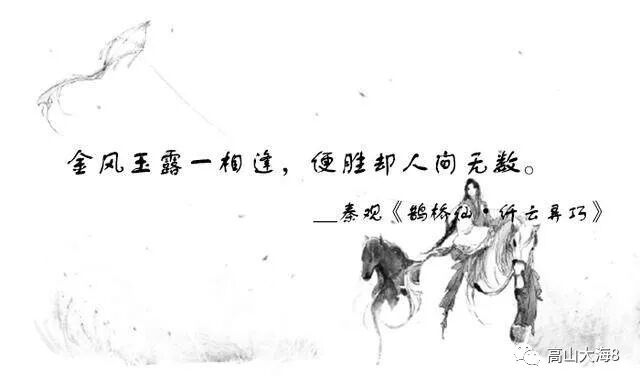 金风玉露一相逢，便胜却人间无数。
__秦观《鹊桥仙·纤云弄巧》
高山大海8